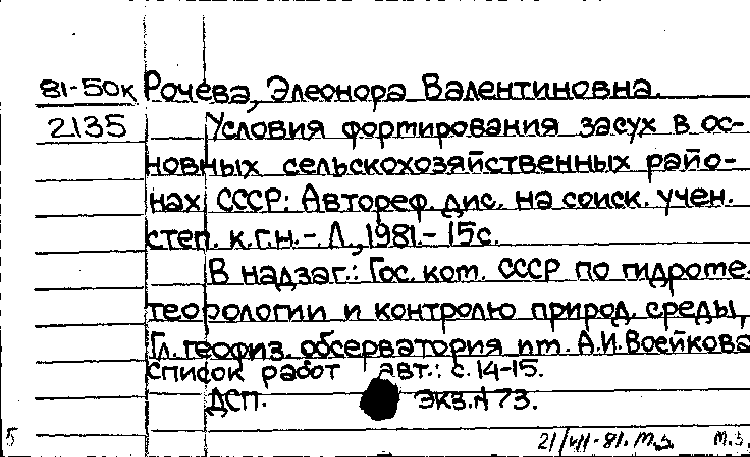 81-50к Рочева, Элеонора Валентиновна.
2135 Условия фортирования засух в ос-
новных сельскохозяйственных райо-
нах СССР: Автореф. дис. на соиск. учен.
степ. к.г.н. - Л., 1981. - 15с.
В надзаг.: Гос. кот. СССР по гидроте-
теорологии и контролю природ. среды,
Гл. геофиз. обсерватория ит. А.И. Воейкова
Список работ авт.: с. 14-15.
ДСП. Экз. № 73.
5 21/VII-81. М.З. М.З.